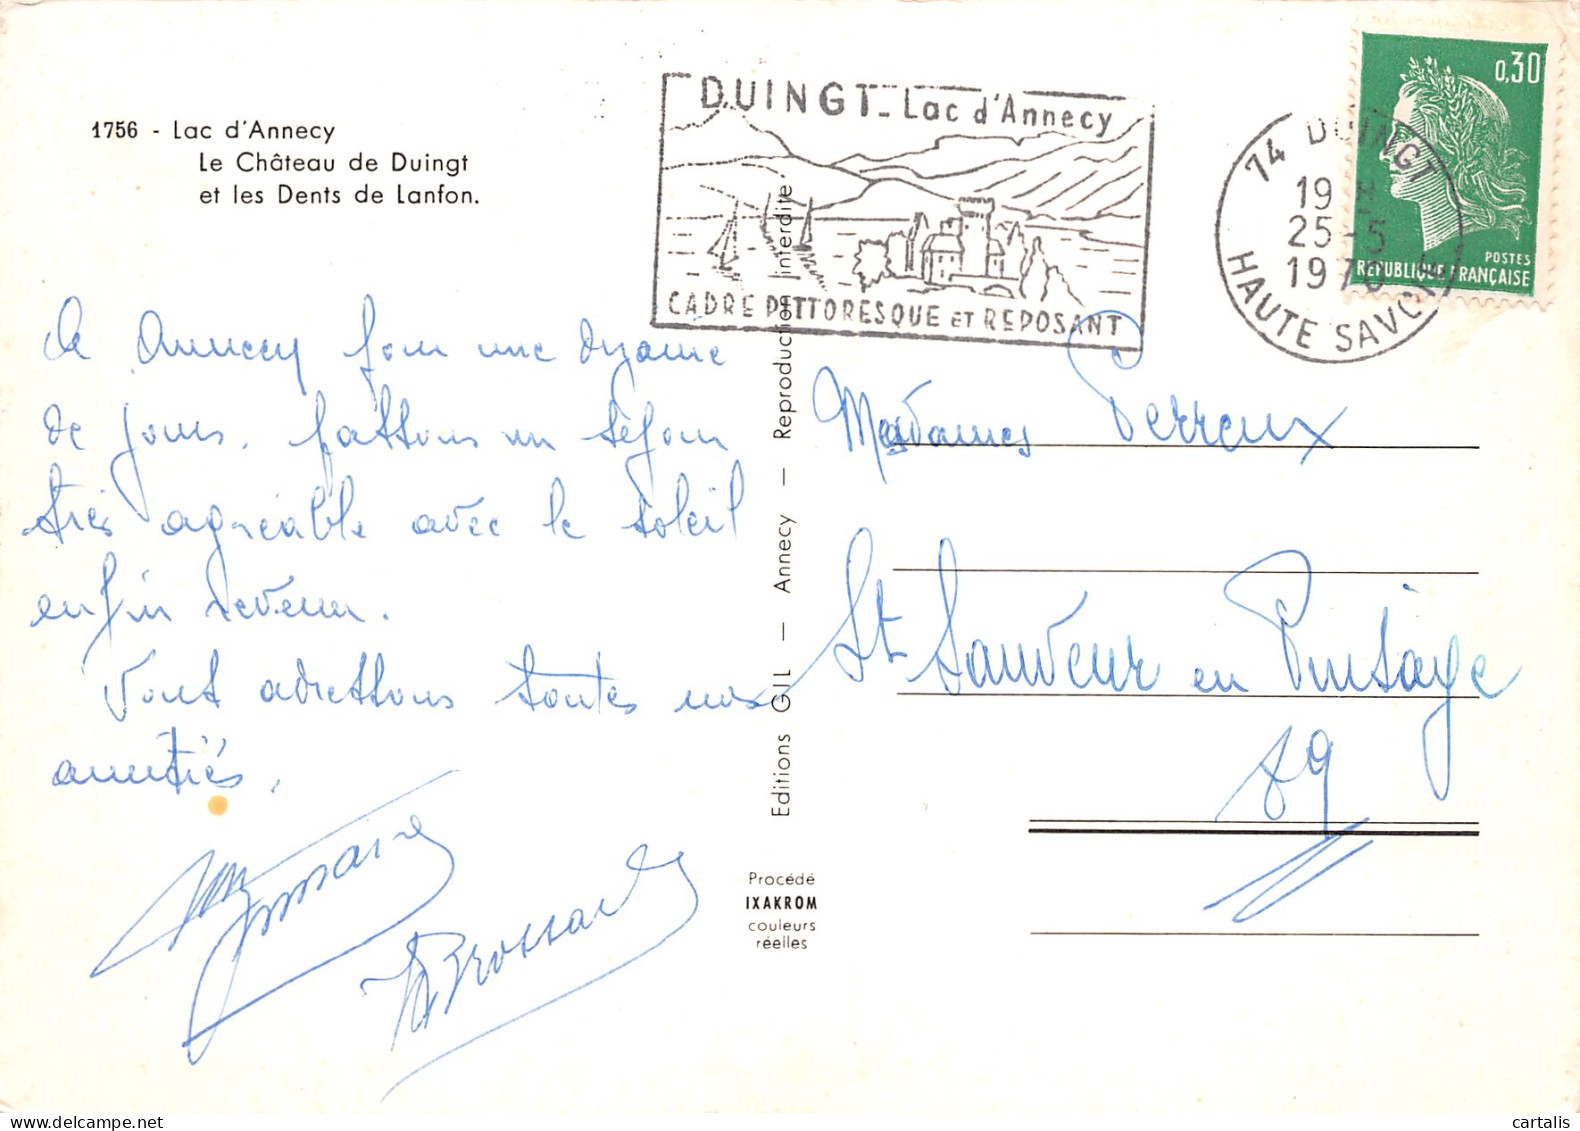 1756 - Lac d'Annecy
Le Château de Duingt
et les Dents de Lanfon.
DUINGT_ Lac d'Annecy
CADRE PITTORESQUE ET REPOSANT
74 DUINGT
19 H
25-5
HAUTE SAVOIE
0,30
POSTES
REPUBLIQUE FRANÇAISE
à Annecy pour une dizaine
de jours, fattons un séjour
très agréable avec le soleil
enfin revenu.
Vous adrettons toutes nos
amitiés.
Brossard
Mesdames Perreux
St Sauveur en Puisaye
89
Editions GIL — Annecy — Reproduction interdite
Procédé
IXAKROM
couleurs
réelles
cartalis
www.delcampe.net